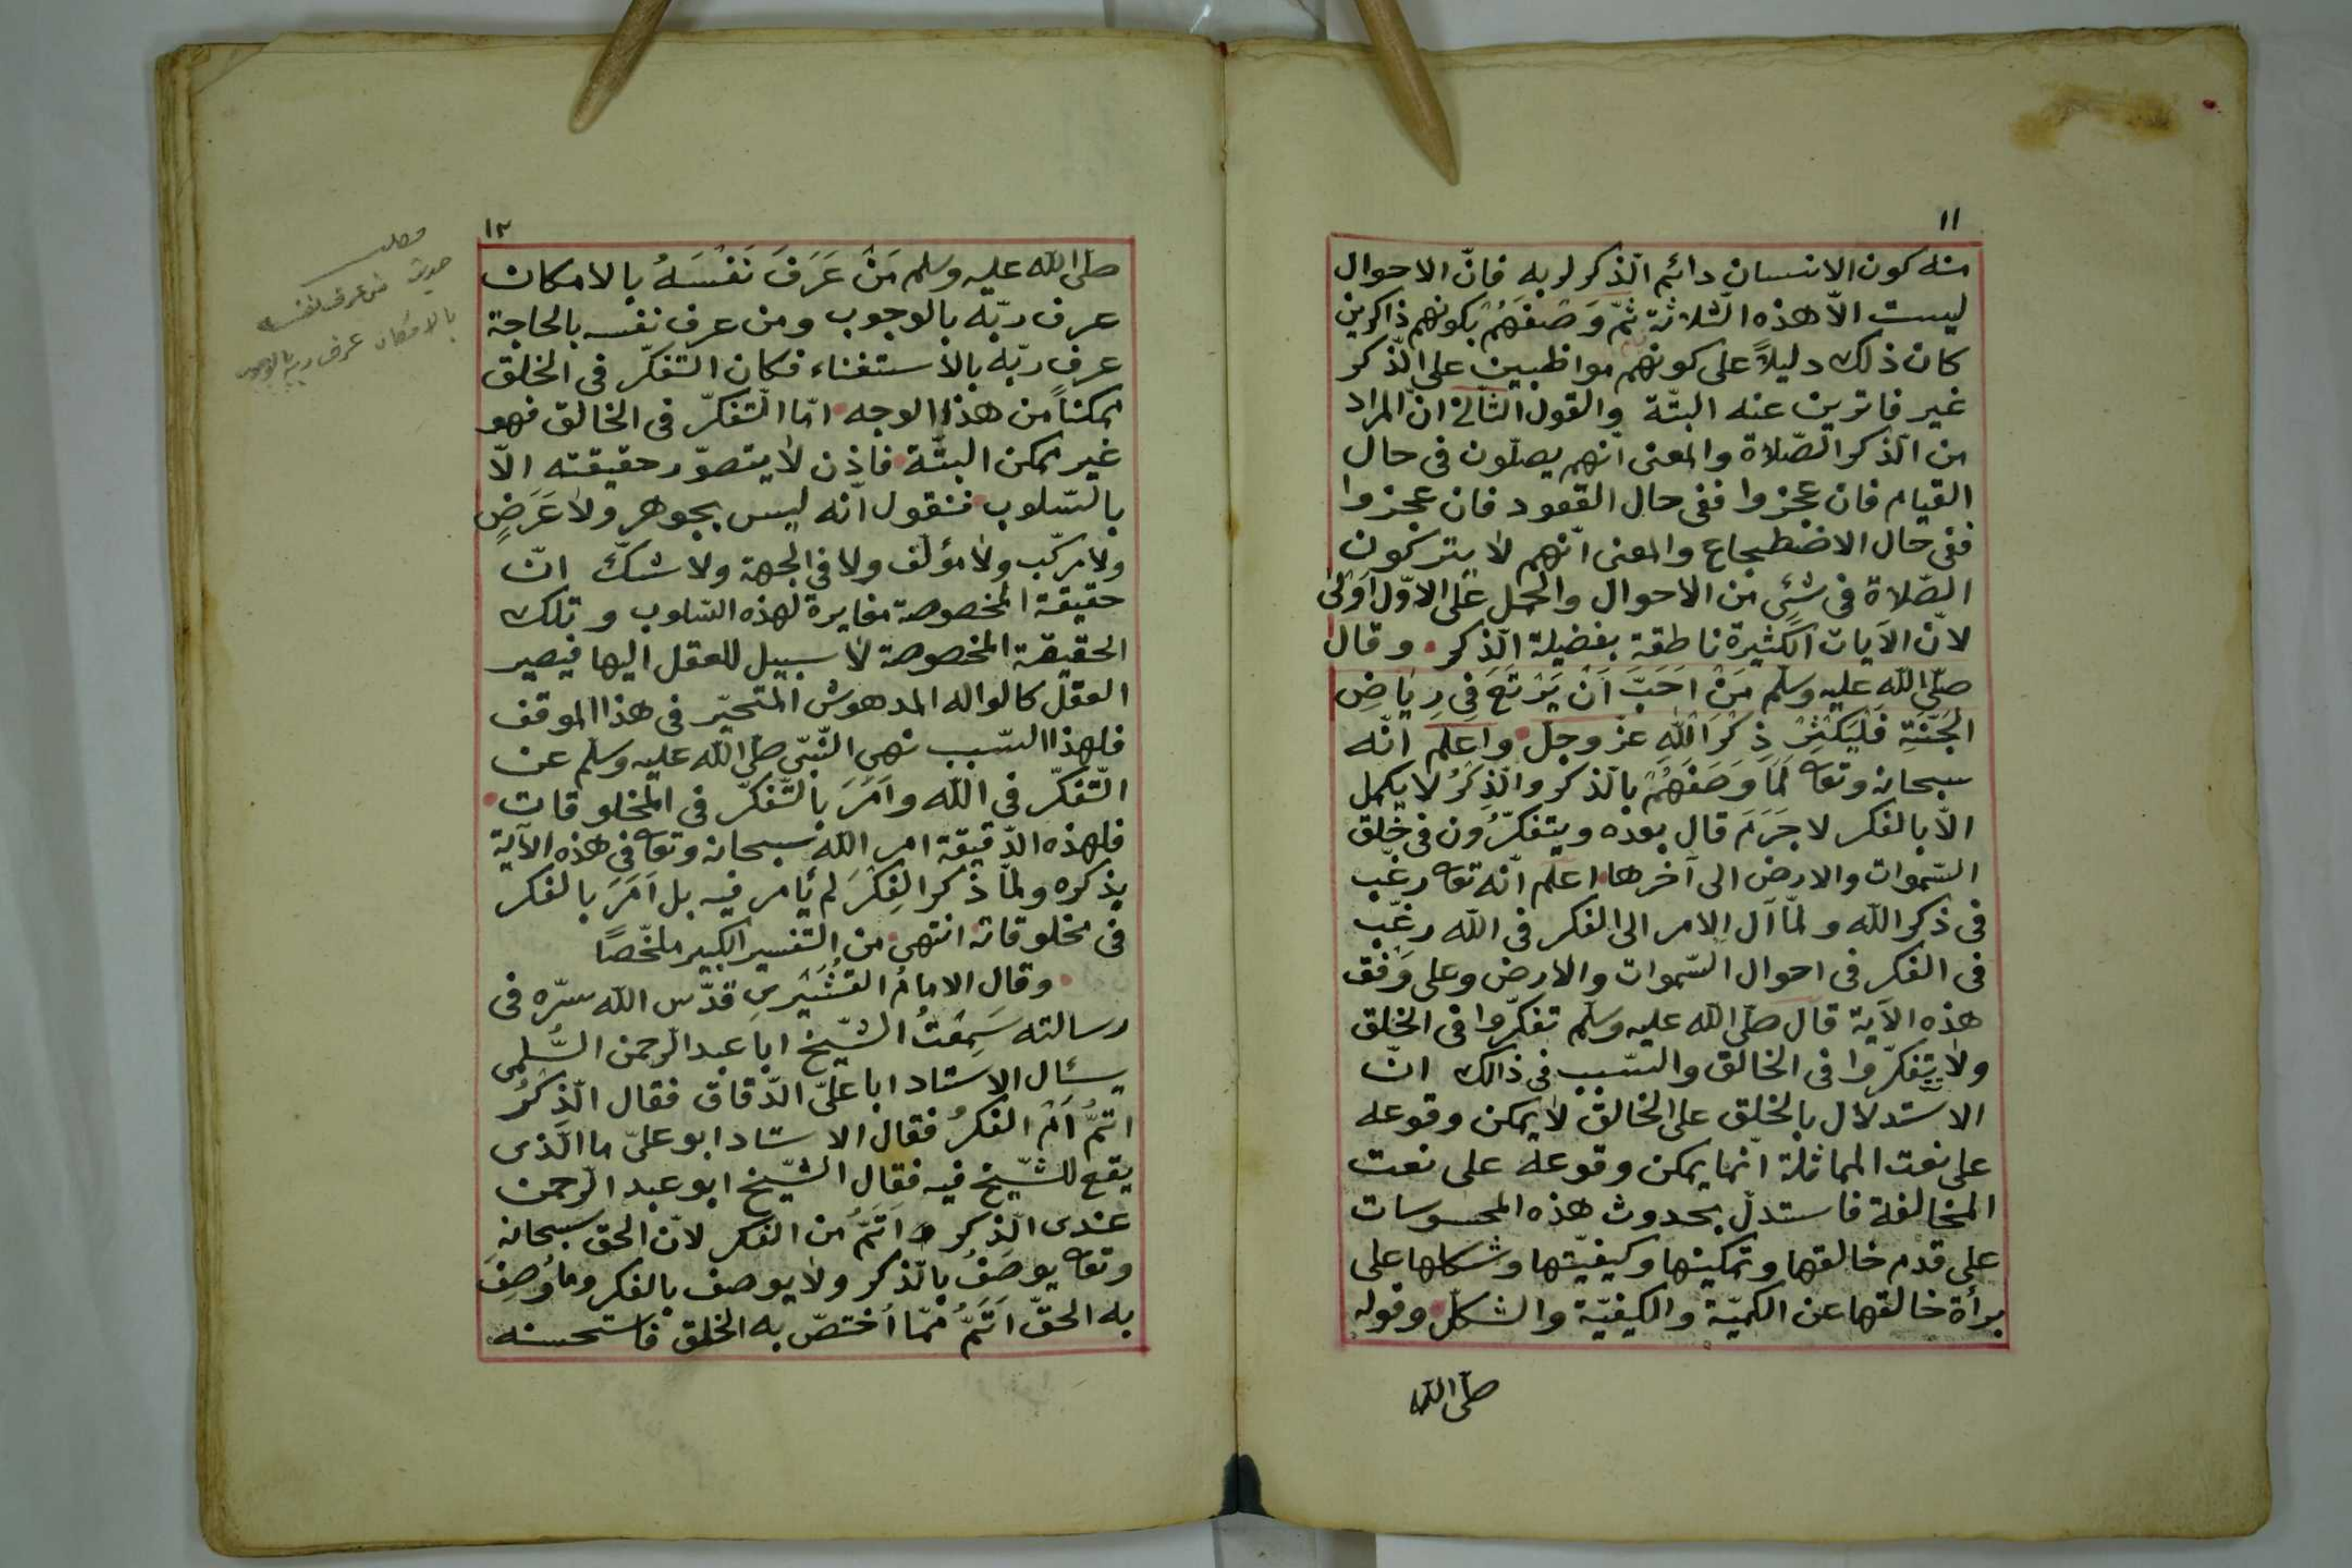 ١١
منه كون الانسان دائم الذكر لربه فانّ الاحوال
ليست الاّ هذه الثلاثة ثمّ وَصَفَهُمْ بكونهم ذاكرين
كان ذلك دليلاً على كونهم مواظبين على الذّكر
غير فاترين عنه البتّة والقول الثانى انّ المراد
من الذّكر الصّلاة والمعنى انّهم يصلّون فى حال
القيام فان عجزوا ففى حال القعود فان عجزوا
ففى حال الاضطجاع والمعنى انّهم لا يتركون
الصّلاة فى شئٍ من الاحوال والحمل على الاوّل اَوْلى
لانّ الآيات الكثيرة ناطقة بفضيلة الذّكر وقال
صلّى الله عليه وسلّم مَنْ اَحَبَّ اَنْ يَرْتَعَ فِى رِيَاضِ
الجَنَّةِ فَلْيُكْثِرْ ذِكْرَ اللهِ عزّ وجلّ واعلم انّه
سبحانه وتعا لَمّا وَصَفَهُمْ بالذكر والذِكرُ لا يكمل
الاّ بالفكر لا جَرَمَ قال بعده ويتفكّرُون فى خلق
السّموات والارض الى آخرها اعلم انّه تعا رغّب
فى ذكر الله ولمّا آل الامر الى الفكر فى الله رغّب
فى الفكر فى احوال السّموات والارض وعلى وَفْق
هذه الآية قال صلّى الله عليه وسلّم تفكّروا فى الخلق
ولا تتفكّروا فى الخالق والسّبب فى ذالك انّ
الاستدلال بالخلق على الخالق لا يمكن وقوعه
على نعت المماثلة انّما يمكن وقوعه على نعت
المخالفة فاستدلّ بحدوث هذه المحسوسات
على قدم خالقها وتمكينها وكيفيّتها وشكلها على
برأة خالقها عن الكميّة والكيفيّة والشكل وقوله
صلّى الله
١٢
صلى الله عليه وسلم مَنْ عَرَفَ نَفْسَهُ بالامكان
عرف ربّه بالوجوب ومن عرف نفسه بالحاجة
عرف ربّه بالاستغناء فكان التفكّر فى الخلق
ممكناً من هذا الوجه امّا التّفكرّ فى الخالق فهو
غير ممكن البتّة فاذن لا يتصوّر حقيقته الاّ
بالسّلوب فنقول انّه ليس بجوهر ولا عَرَضٍ
ولا مركّب ولا مؤلّف ولا فى الجهة ولا شكّ انّ
حقيقة المخصوصة مغايرة لهذه السّلوب وتلك
الحقيقة المخصوصة لا سبيل للعقل اليها فيصير
العقل كالواله المدهوش المتحيّر فى هذا الموقف
فلهذا السّبب نهى النّبىّ صلّى الله عليه وسلّم عن
التّفكّر فى الله وَاَمَرَ بالتّفكّر فى المخلوقات
فلهذه الدّقيقة امر الله سبحانه وتعا فى هذه الآية
بذكره ولمّا ذكر الفِكْرَ لم يأمر فيه بل اَمَرَ بالفكر
فى مخلوقاته انتهى من التفسير الكبير ملخّصاً
وقال الامامُ القُشَيْرى قدّس الله سرّه فى
رسالته سَمِعْتُ الشّيخ ابا عبد الرحمن السُّلمى
يسئال الاستاد ابا علىّ الدّقاق فقال الذِّكْرُ
اتمُّ اَمْ الفكرُ فقال الاستاد ابو علىّ ما الّذى
يقع للشّيخ فيه فقال الشّيخ ابو عبد الرحمن
عندى الذّكر اَتمُّ من الفكر لانّ الحق سبحانه
وتعا يوصَفُ بالذّكر ولا يوصف بالفكر وما وُصِفَ
به الحقّ اَتَمُّ ممّا اُختصّ به الخلق فاستحسنه
مطلب
حديث من عرف نفسه
بالامكان عرف ربه بالوجوب